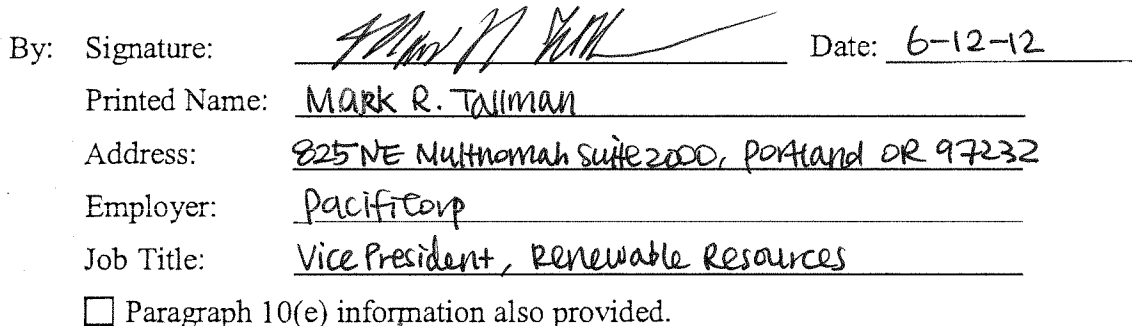 By: Signature: Date: 6-12-12
Printed Name: Mark R. Tallman
Address: 825 NE Multnomah Suite 2000, Portland OR 97232
Employer: PacifiCorp
Job Title: Vice President, Renewable Resources
Paragraph 10(e) information also provided.